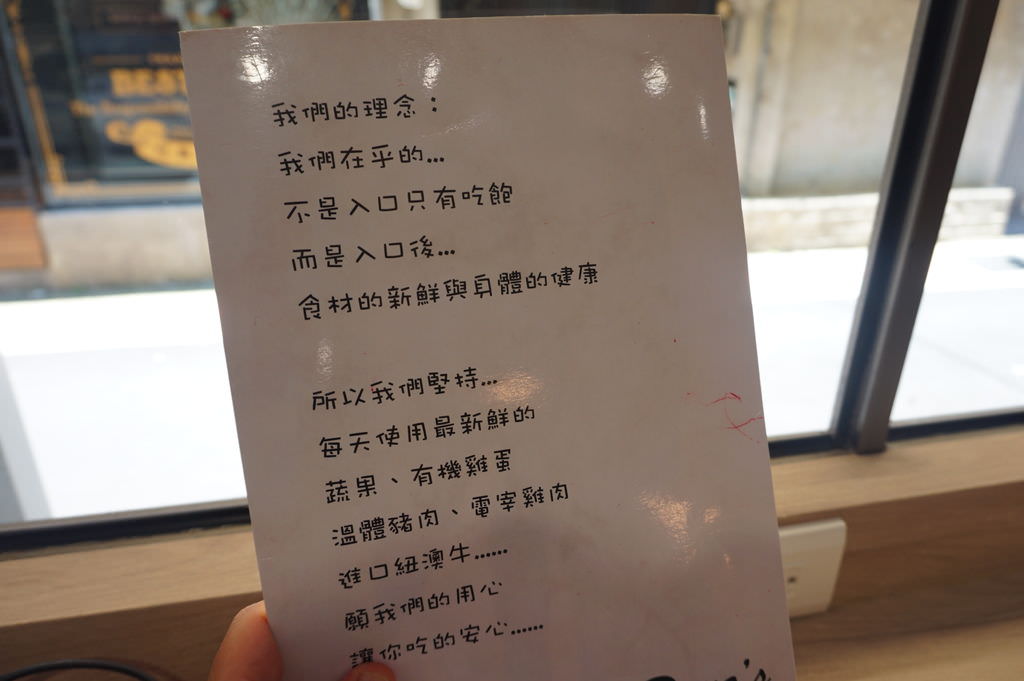 我們的理念：
我們在乎的...
不是入口只有吃飽
而是入口後...
食材的新鮮與身體的健康
所以我們堅持...
每天使用最新鮮的
蔬果、有機雞蛋
溫體豬肉、電宰雞肉
進口紐澳牛......
願我們的用心
讓你吃的安心......